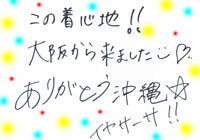 この着心地!!
大阪から来ました♡
ありがとう沖縄☆
イヤサーサ!!